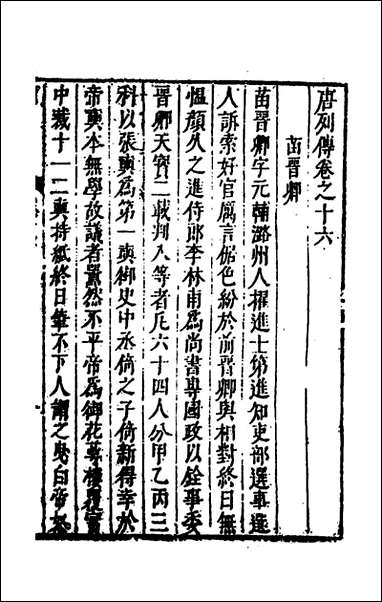 唐列傳卷之十六
苗晉卿
苗晉卿字元輔潞州人擢進士第進知吏部選事選
人訴索好官厲言倨色紛於前晉卿與相對終日無
愠顔久之進侍郎李林甫爲尚書專國政以銓事委
晉卿天寶二載判入等者凡六十四人分甲乙丙三
科以張奭爲第一奭御史中丞倚之子倚新得幸於
帝奭本無學故議者囂然不平帝爲御花萼樓覆實
中裁十一二奭持紙終日筆不下人謂之曳白帝怒